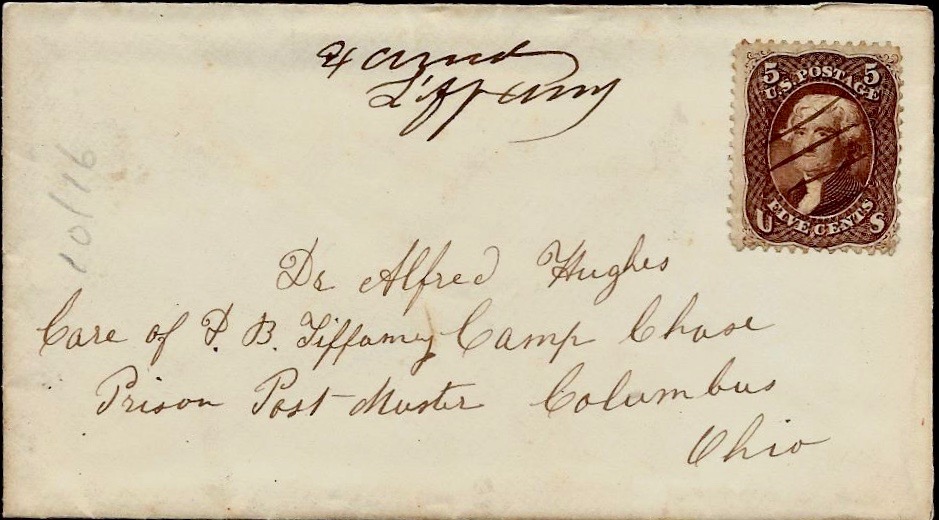 Tiffany
5 5
U.S. POSTAGE
FIVE CENTS
U S
10/16
Dr Alfred Hughes
Care of P. B. Tiffaney Camp Chase
Prison Post-Master Columbus
Ohio